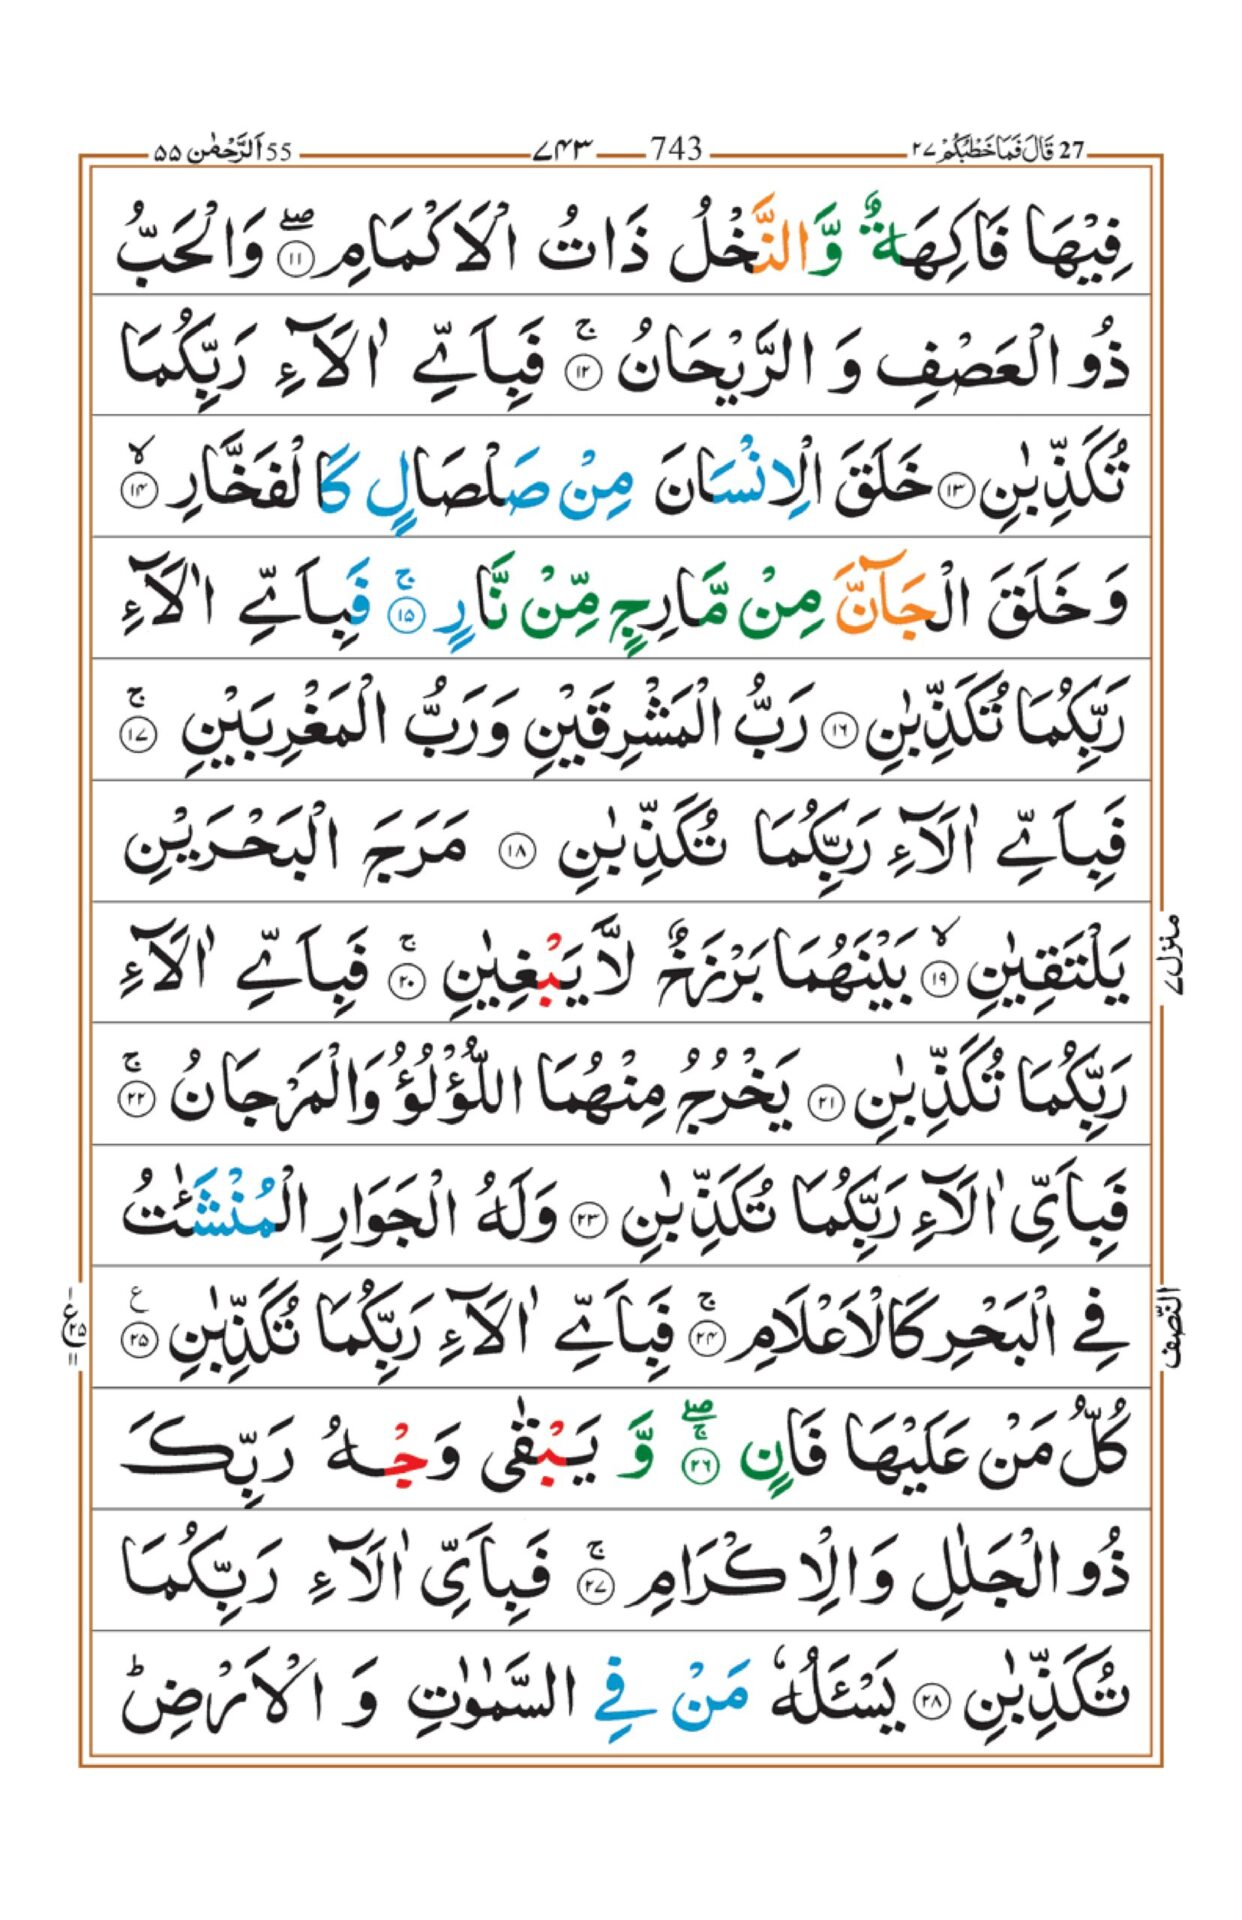 27 قَالَ فَمَا خَطْبُكُمْ ۲۷ 743 ۷۴۳ 55 اَلرَّحْمٰن ۵۵
فِيْهَا فَاكِهَةٌ وَّالنَّخْلُ ذَاتُ الْاَكْمَامِ ۖ ۱۱ وَالْحَبُّ
ذُو الْعَصْفِ وَ الرَّيْحَانُ ۚ ۱۲ فَبِاَيِّ اٰلَآءِ رَبِّكُمَا
تُكَذِّبٰنِ ۱۳ خَلَقَ الْاِنْسَانَ مِنْ صَلْصَالٍ كَالْفَخَّارِ ۙ ۱۴
وَ خَلَقَ الْجَآنَّ مِنْ مَّارِجٍ مِّنْ نَّارٍ ۚ ۱۵ فَبِاَيِّ اٰلَآءِ
رَبِّكُمَا تُكَذِّبٰنِ ۱۶ رَبُّ الْمَشْرِقَيْنِ وَرَبُّ الْمَغْرِبَيْنِ ۚ ۱۷
فَبِاَيِّ اٰلَآءِ رَبِّكُمَا تُكَذِّبٰنِ ۱۸ مَرَجَ الْبَحْرَيْنِ
يَلْتَقِيٰنِ ۙ ۱۹ بَيْنَهُمَا بَرْزَخٌ لَّا يَبْغِيٰنِ ۚ ۲۰ فَبِاَيِّ اٰلَآءِ
منزل ۷
رَبِّكُمَا تُكَذِّبٰنِ ۲۱ يَخْرُجُ مِنْهُمَا اللُّؤْلُؤُ وَالْمَرْجَانُ ۚ ۲۲
فَبِاَيِّ اٰلَآءِ رَبِّكُمَا تُكَذِّبٰنِ ۲۳ وَلَهُ الْجَوَارِ الْمُنْشَئٰتُ
فِي الْبَحْرِ كَالْاَعْلَامِ ۚ ۲۴ فَبِاَيِّ اٰلَآءِ رَبِّكُمَا تُكَذِّبٰنِ ۲۵ ع
النّصف
ع ۱ ۲۵ ۱۱
كُلُّ مَنْ عَلَيْهَا فَانٍ ۖ ۚ ۲۶ وَّ يَبْقٰى وَجْهُ رَبِّكَ
ذُو الْجَلٰلِ وَالْاِكْرَامِ ۚ ۲۷ فَبِاَيِّ اٰلَآءِ رَبِّكُمَا
تُكَذِّبٰنِ ۲۸ يَسْئَلُهٗ مَنْ فِي السَّمٰوٰتِ وَ الْاَرْضِ ؕ